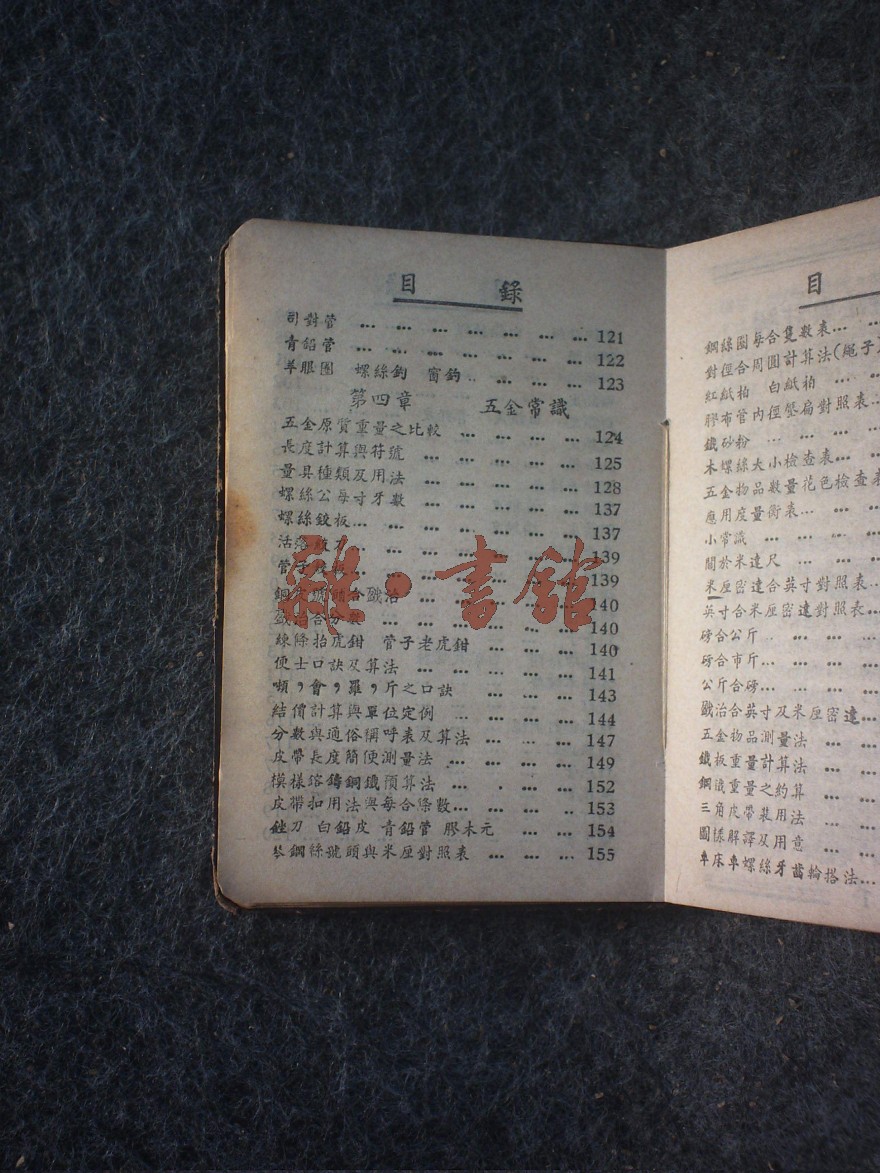 目 錄
司對管 ... ... ... ... ... ... ... 121
青鉛管 ... ... ... ... ... ... ... 122
羊眼圈 螺絲鈎 窗鈎 ... ... ... ... 123
第四章 五金常識
五金原質重量之比較 ... ... ... ... 124
長度計算與符號 ... ... ... ... ... 125
量具種類及用法 ... ... ... ... ... 128
螺絲公母寸牙數 ... ... ... ... ... 137
螺絲鉸板... ... ... ... ... ... 137
活落鉸刀 ... ... ... ... 139
管子 ... ... ... 139
鋼 號頭合 ... ... ... 140
合分 ... ... ... 140
練條抬虎鉗 管子老虎鉗 ... ... ... 140
便士口訣及算法 ... ... ... ... ... 141
噸，會，羅，斤之口訣 ... ... ... ... 143
結價計算與單位定例 ... ... ... ... 144
分數與通俗稱呼表及算法 ... ... ... 147
皮帶長度簡便測量法 ... ... ... ... 149
模樣鎔鑄銅鐵預算法 ... ... ... 152
皮帶扣用法與每合條數... ... ... 153
銼刀 白鉛皮 青鉛管 膠木元 ... ... 154
琴鋼絲號頭與米厘對照表 ... ... ... 155
雜·書館
目
鋼線圈每合隻數表... ...
對徑合周圓計算法(繩子
紅紙柏 白紙柏 ... ...
膠布管內徑壓扁對照表...
鐵砂粉 ... ... ... ...
木螺絲大小檢查表... ...
五金物品數量花色檢查表
應用度量衡表... ... ...
小常識 ... ... ... ...
關於米達尺 ... ... ...
米厘密達合英寸對照表...
英寸合米厘密達對照表...
磅合公斤 ... ... ...
磅合市斤... ... ... ...
公斤合磅... ... ... ...
戤治合英寸及米厘密達...
五金物品測量法 ... ...
鐵板重量計算法 ... ...
鋼鐵重量之約算 ... ...
三角皮帶裝用法 ... ...
圖樣解譯及用意 ... ...
車床車螺絲牙齒輪搭法...